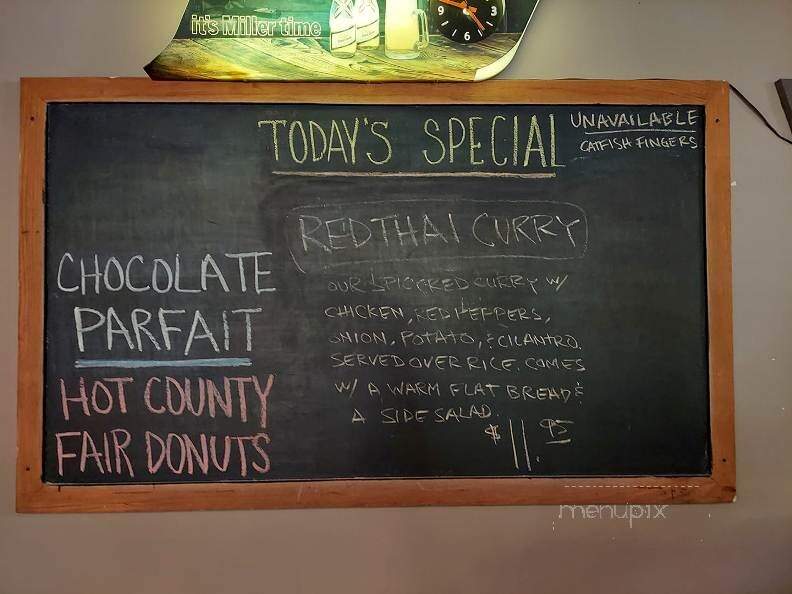 it's Miller time
9 3
6
TODAY'S SPECIAL
UNAVAILABLE
CATFISH FINGERS
RED THAI CURRY
OUR SPICY RED CURRY W/
CHICKEN, RED PEPPERS,
ONION, POTATO, & CILANTRO.
SERVED OVER RICE. COMES
W/ A WARM FLAT BREAD &
A SIDE SALAD.
$11.95
CHOCOLATE
PARFAIT
HOT COUNTY
FAIR DONUTS
menupix